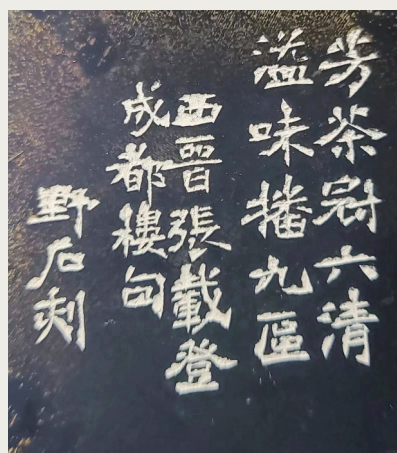 芳茶冠六清
溢味播九區
西晉張載登
成都樓句
野石刻